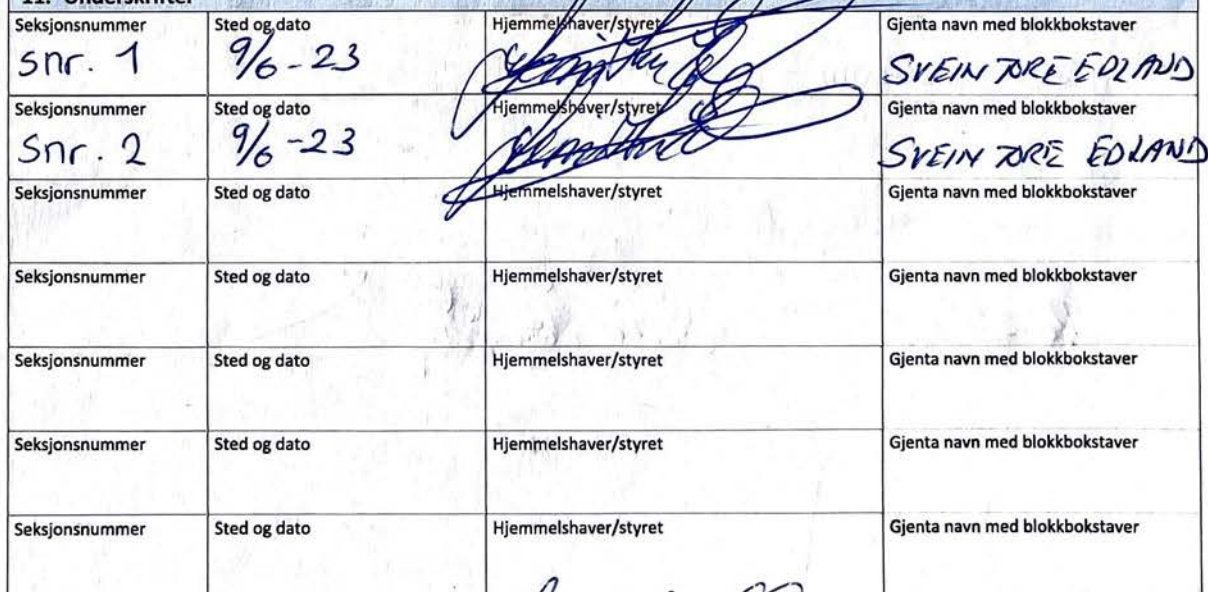 11. Underskrifter
Seksjonsnummer Sted og dato Hjemmelshaver/styret Gjenta navn med blokkbokstaver
snr. 1 9/6-23 SVEIN TORE EDLAND
Seksjonsnummer Sted og dato Hjemmelshaver/styret Gjenta navn med blokkbokstaver
Snr. 2 9/6-23 SVEIN TORE EDLAND
Seksjonsnummer Sted og dato Hjemmelshaver/styret Gjenta navn med blokkbokstaver
Seksjonsnummer Sted og dato Hjemmelshaver/styret Gjenta navn med blokkbokstaver
Seksjonsnummer Sted og dato Hjemmelshaver/styret Gjenta navn med blokkbokstaver
Seksjonsnummer Sted og dato Hjemmelshaver/styret Gjenta navn med blokkbokstaver
Seksjonsnummer Sted og dato Hjemmelshaver/styret Gjenta navn med blokkbokstaver